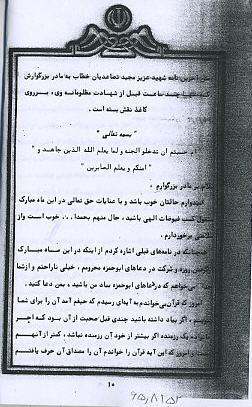 آخرین نامه شهید عزیز مجید تصاعدیان خطاب به مادر بزرگوارش
چند ساعت قبل از شهادت مظلومانه وی، بر روی
کاغذ نقش بسته است.
" بسمه تعالی "
ان تدخلوا الجنه و لما یعلم الله الذین جاهد و "
" منکم و یعلم الصابرین "
بر مادر بزرگوارم
امیدوارم حالتان خوب باشد و با عنایات حق تعالی در این ماه مبارک
کسب فیوضات الهی باشید، حال منهم بحمدا... خوب است و از
برخوردارم.
در نامه‌های قبلی اشاره کردم از اینکه در این ماه مبارک
روزه و شرکت در دعاهای ابوحمزه محرومم، خیلی ناراحتم و از شما
می‌خواهم که در دعای ابوحمزه بیاد من باشید، بمن دعا کنید.
امروز که قرآن می‌خواندم به آیه‌ای رسیدم که حیفم آمد آن را برای شما
اگر بیاد داشته باشید چندی قبل صحبت از آن بود که اجر
یک رزمنده اگر بیشتر از خود آن رزمنده نباشد، کمتر از آنهم
امروز که این آیه قرآن را خواندم آن را مصداق آن حرف یافتم
۱۰